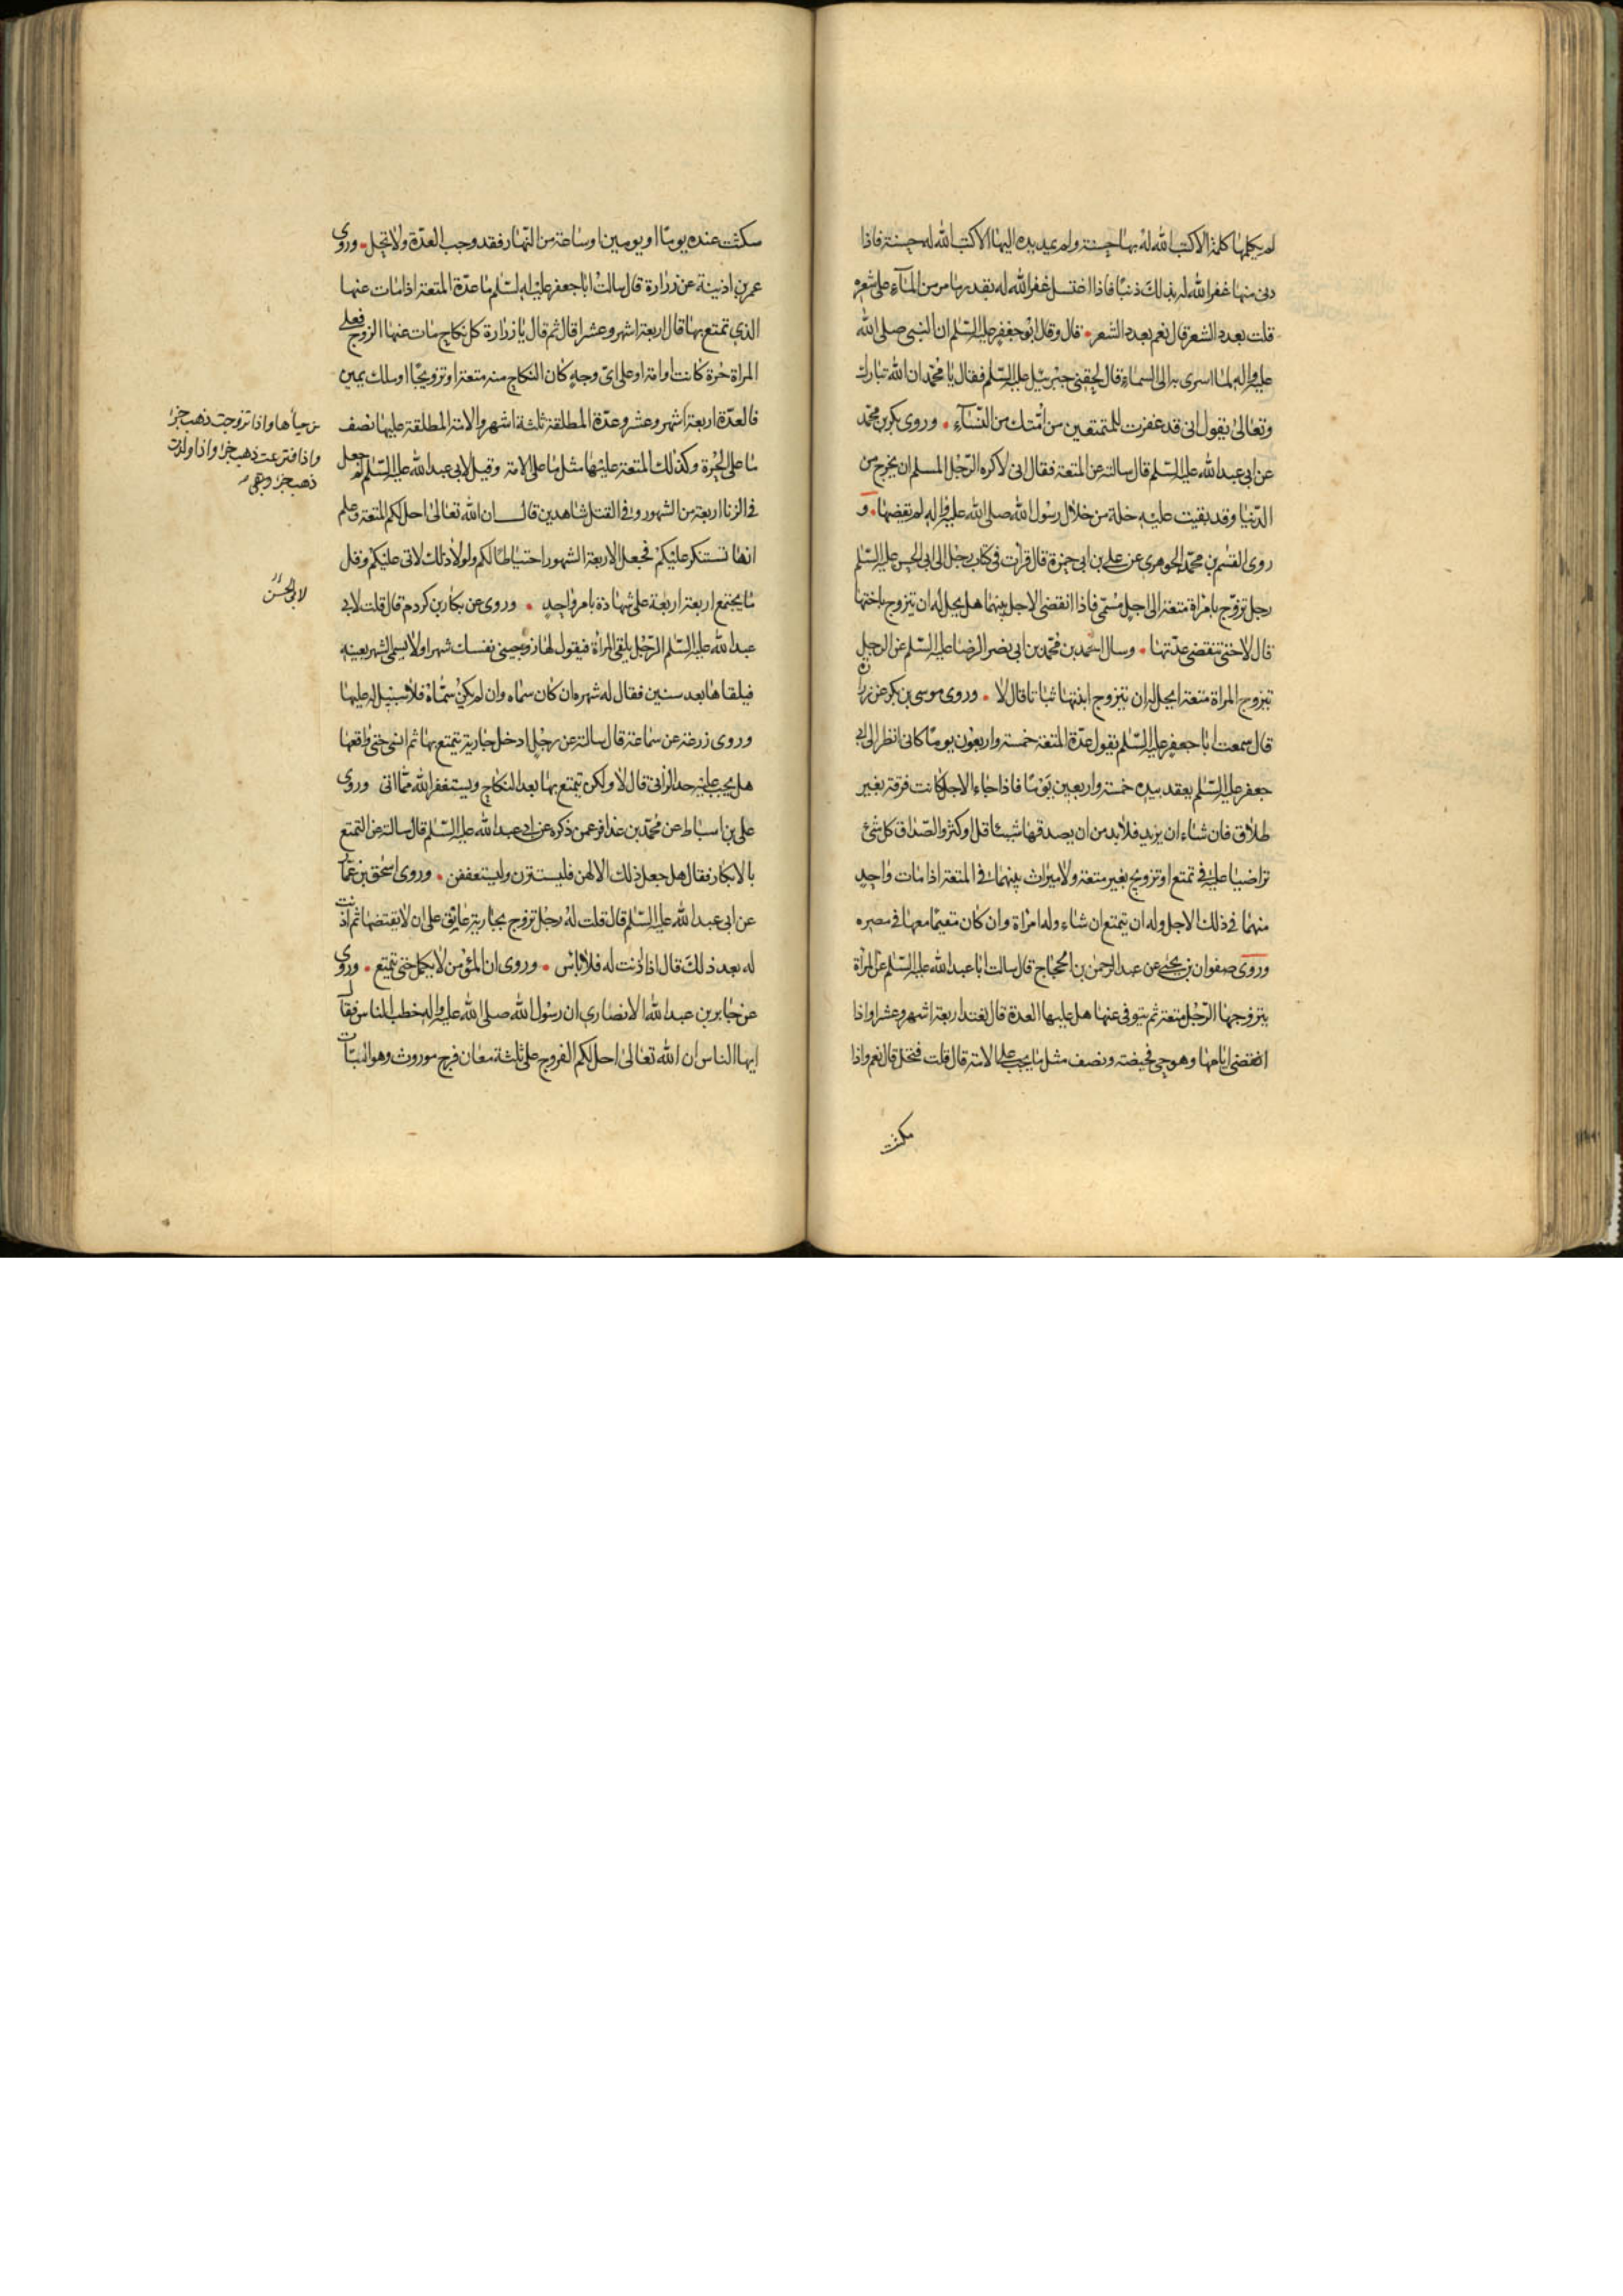 لم يكلمها كلمة الا كتب الله له بها حسنة ولم يمد يده اليها الا كتب الله له حسنة فاذا
دنى منها غفر الله له بذلك ذنبًا فاذا اغتسل غفر الله له بقدر ما مر من المآء على شعره
قلت بعدد الشعر قال نعم بعدد الشعر • قال وقال ابو جعفر عليه السّلم ان النبى صلى الله
عليه واله لما اسرى به الى السماء قال لحقنى جبرئيل عليه السّلم فقال يا محمّد ان الله تبارك
وتعالى يقول انى قد غفرت للمتمتعين من امتك من النسآء • وروى بكر بن محمّد
عن ابى عبد الله عليه السّلم قال سالته عن المتعة فقال انى لاكره الرّجل المسلم ان يخرج من
الدّنيا وقد بقيت عليه خلة من خلال رسول الله صلى الله عليه واله لم يقضها • و
روى القسم بن محمّد الجوهرى عن على بن ابى حمزة قال قرات فى كتاب رجل الى ابى الحسن عليه السّلم
رجل تزوّج بامراة متعة الى اجل مسمّى فاذا انقضى الاجل بينهما هل يحل له ان يتزوج باختها
قال لا حتى تنقضى عدتها • وسال احمد بن محمّد بن ابى نصر الرضا عليه السّلم عن الرجل
يتزوج المراة متعة ايحل له ان يتزوج ابنتها ثباتا قال لا • وروى موسى بن بكر عن زرارة
قال سمعت ابا جعفر عليه السّلم يقول عدّة المتعة خمسة واربعون يومًا كانى انظر الى ابى
جعفر عليه السّلم يعقد بيده خمسة واربعين يومًا فاذا جاء الاجل كانت فرقة بغير
طلاق فان شاء ان يزيد فلا بد من ان يصدقها شيئا قل او كثر والصّداق كل شئ
تراضيا عليه فى تمتع او تزويج بغير متعة ولا ميراث بينهما فى المتعة اذا مات واحد
منهما فى ذلك الاجل وله ان يتمتع ان شاء وله امراة وان كان مقيمًا معها فى مصره
وروى صفوان بن يحيى عن عبد الرحمن بن الحجاج قال سالت ابا عبد الله عليه السّلم عن المراة
يتزوجها الرّجل متعة ثم يتوفى عنها هل عليها العدة قال تعتد اربعة اشهر وعشرا واذا
انقضى ايامها وهو حى فحيضة ونصف مثل ما يجب على الامة قال قلت فتحل قال نعم واذا
مكثت
مكثت عنده يومًا او يومين او ساعة من النّهار فقد وجب العدّة ولا تحل • وروى
عمر بن اذينة عن زرارة قال سالت ابا جعفر عليه السّلم ما عدّة المتعة اذا مات عنها
الذى تمتع بها قال اربعة اشهر وعشرا قال ثم قال يا زرارة كل نكاح مات عنها الزوج فعلى
المراة حرة كانت او امة او على اىّ وجه كان النكاح منه متعة او تزويجًا او ملك يمين
فالعدّة اربعة اشهر وعشر وعدّة المطلقة ثلثة اشهر والامة المطلقة عليها نصف
ما على الحرة وكذلك المتعة عليها مثل ما على الامة وقيل لابى عبد الله عليه السّلم لم جعل
فى الزنا اربعة من الشهود وفى القتل شاهدين قال ان الله تعالى احل لكم المتعة وعلم
انها تستنكر عليكم فجعل الاربعة الشهود احتياطا لكم ولولا ذلك لاتى عليكم وقل
ما يجتمع اربعة اربعة على شهادة بامر واحد • وروى عن بكار بن كردم قال قلت لابى
عبد الله عليه السّلم الرّجل يلقى المراة فيقول لها زوجينى نفسك شهرا ولا يسمى الشهر بعينه
فيلقاها بعد سنين فقال له شهره ان كان سماه وان لم يكن سمّاه فلا سبيل له عليها
وروى زرعة عن سماعة قال سالته عن رجل ادخل جارية يتمتع بها ثم انسى حتى واقعها
هل يجب عليه حد الزانى قال لا ولكن يتمتع بها بعد النكاح ويستغفر الله ممّا اتى وروى
على بن اسباط عن محمّد بن عذافر عمن ذكره عن ابى عبد الله عليه السّلم قال سالته عن التمتع
بالابكار فقال هل جعل ذلك الا لهن فليستترن وليستعففن • وروى اسحٰق بن عمار
عن ابى عبد الله عليه السّلم قال قلت له رجل تزوج بجارية عاتق على ان لا يفتضها ثم اذنت
له بعد ذلك قال اذا اذنت له فلا باس • وروى ان المؤمن لا يكمل حتى يتمتع • وروى
عن جابر بن عبد الله الانصارى ان رسول الله صلى الله عليه واله خطب الناس فقال
ايها الناس ان الله تعالى احل لكم الفروج على ثلثة معان فرج موروث وهو البتات
من حيائها واذا تزوجت ذهب جزء
واذا افترعت ذهب جزء واذا ولدت
ذهب جزء وبقى
لابى الحسن